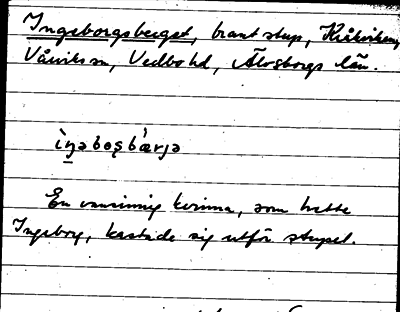 Ingeborgsberget, brant stup, Kråkviken,
Vårviks sn, Vedbo hd, Älvsborgs län.
ìŋəboʂbǽrjə
En vansinnig kvinna, som hette
Ingeborg, kastade sig utför stupet.